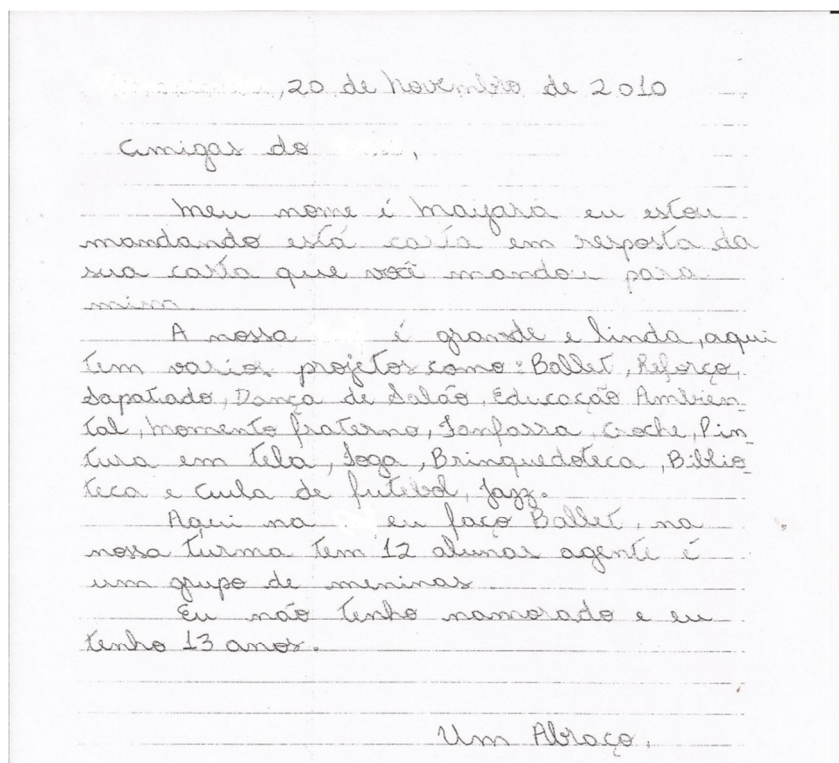 , 20 de novembro de 2010
Amigas do ,
Meu nome é Mayara eu estou
mandando está carta em resposta da
sua carta que você mandou para
mim.
A nossa é grande e linda, aqui
tem varios projetos como: Ballet, Reforço,
Sapatiado, Dança de Salão, Educação Ambien-
tal, momento fraterno, Fanfarra, Croche, Pin-
tura em tela, Ioga, Brinquedoteca, Biblio-
teca e Aula de futebol, Jazz.
Aqui na eu faço Ballet, na
nossa turma tem 12 alunas agente é
um grupo de meninas.
Eu não tenho namorado e eu
tenho 13 anos.
Um Abraço,